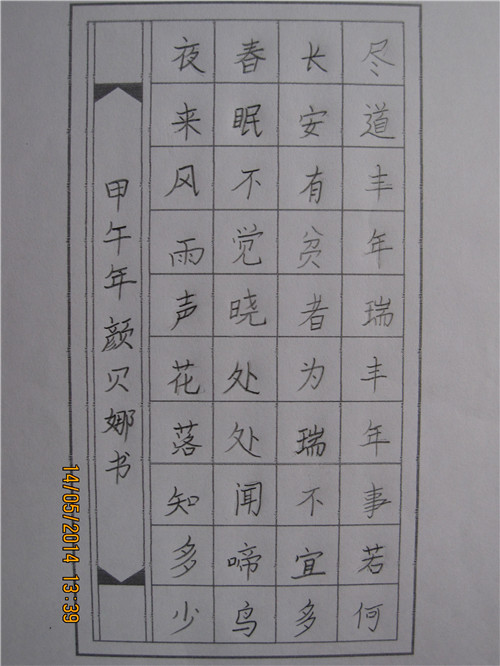 尽道丰年瑞丰年事若何
长安有贫者为瑞不宜多
春眠不觉晓处处闻啼鸟
夜来风雨声花落知多少
甲午年颜贝娜书
14/05/2014 13:39